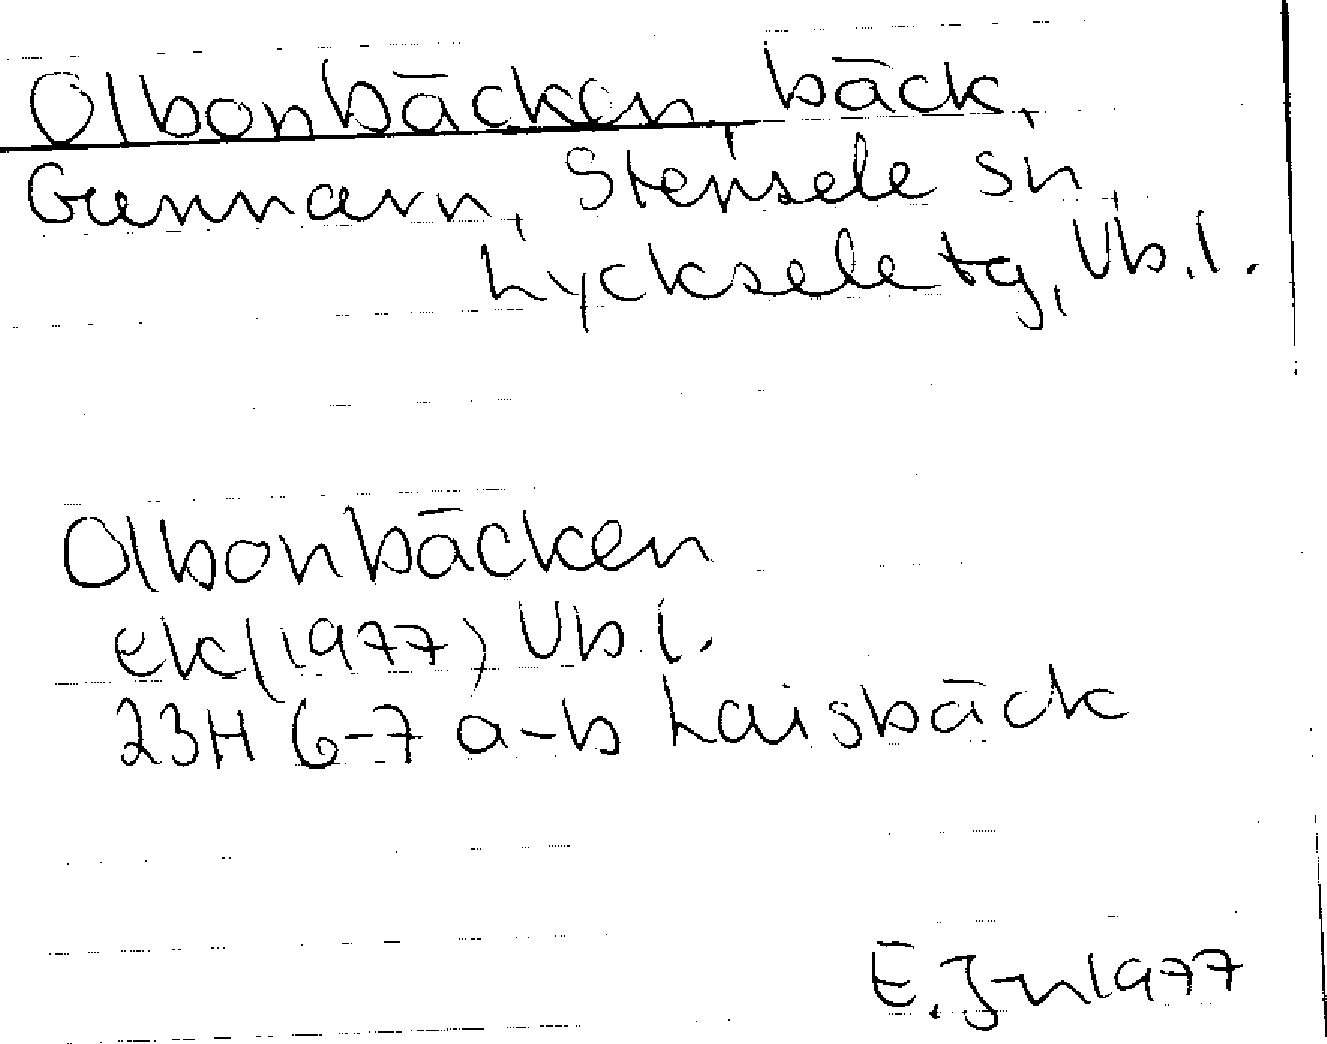 Olbonbäcken, bäck,
Gunnarn, Stensele sn,
Lycksele tg, Vb.l.
Olbonbäcken
ek(1977) Vb.l.
23H 6-7 a-b Laisbäck
E. J-n 1977